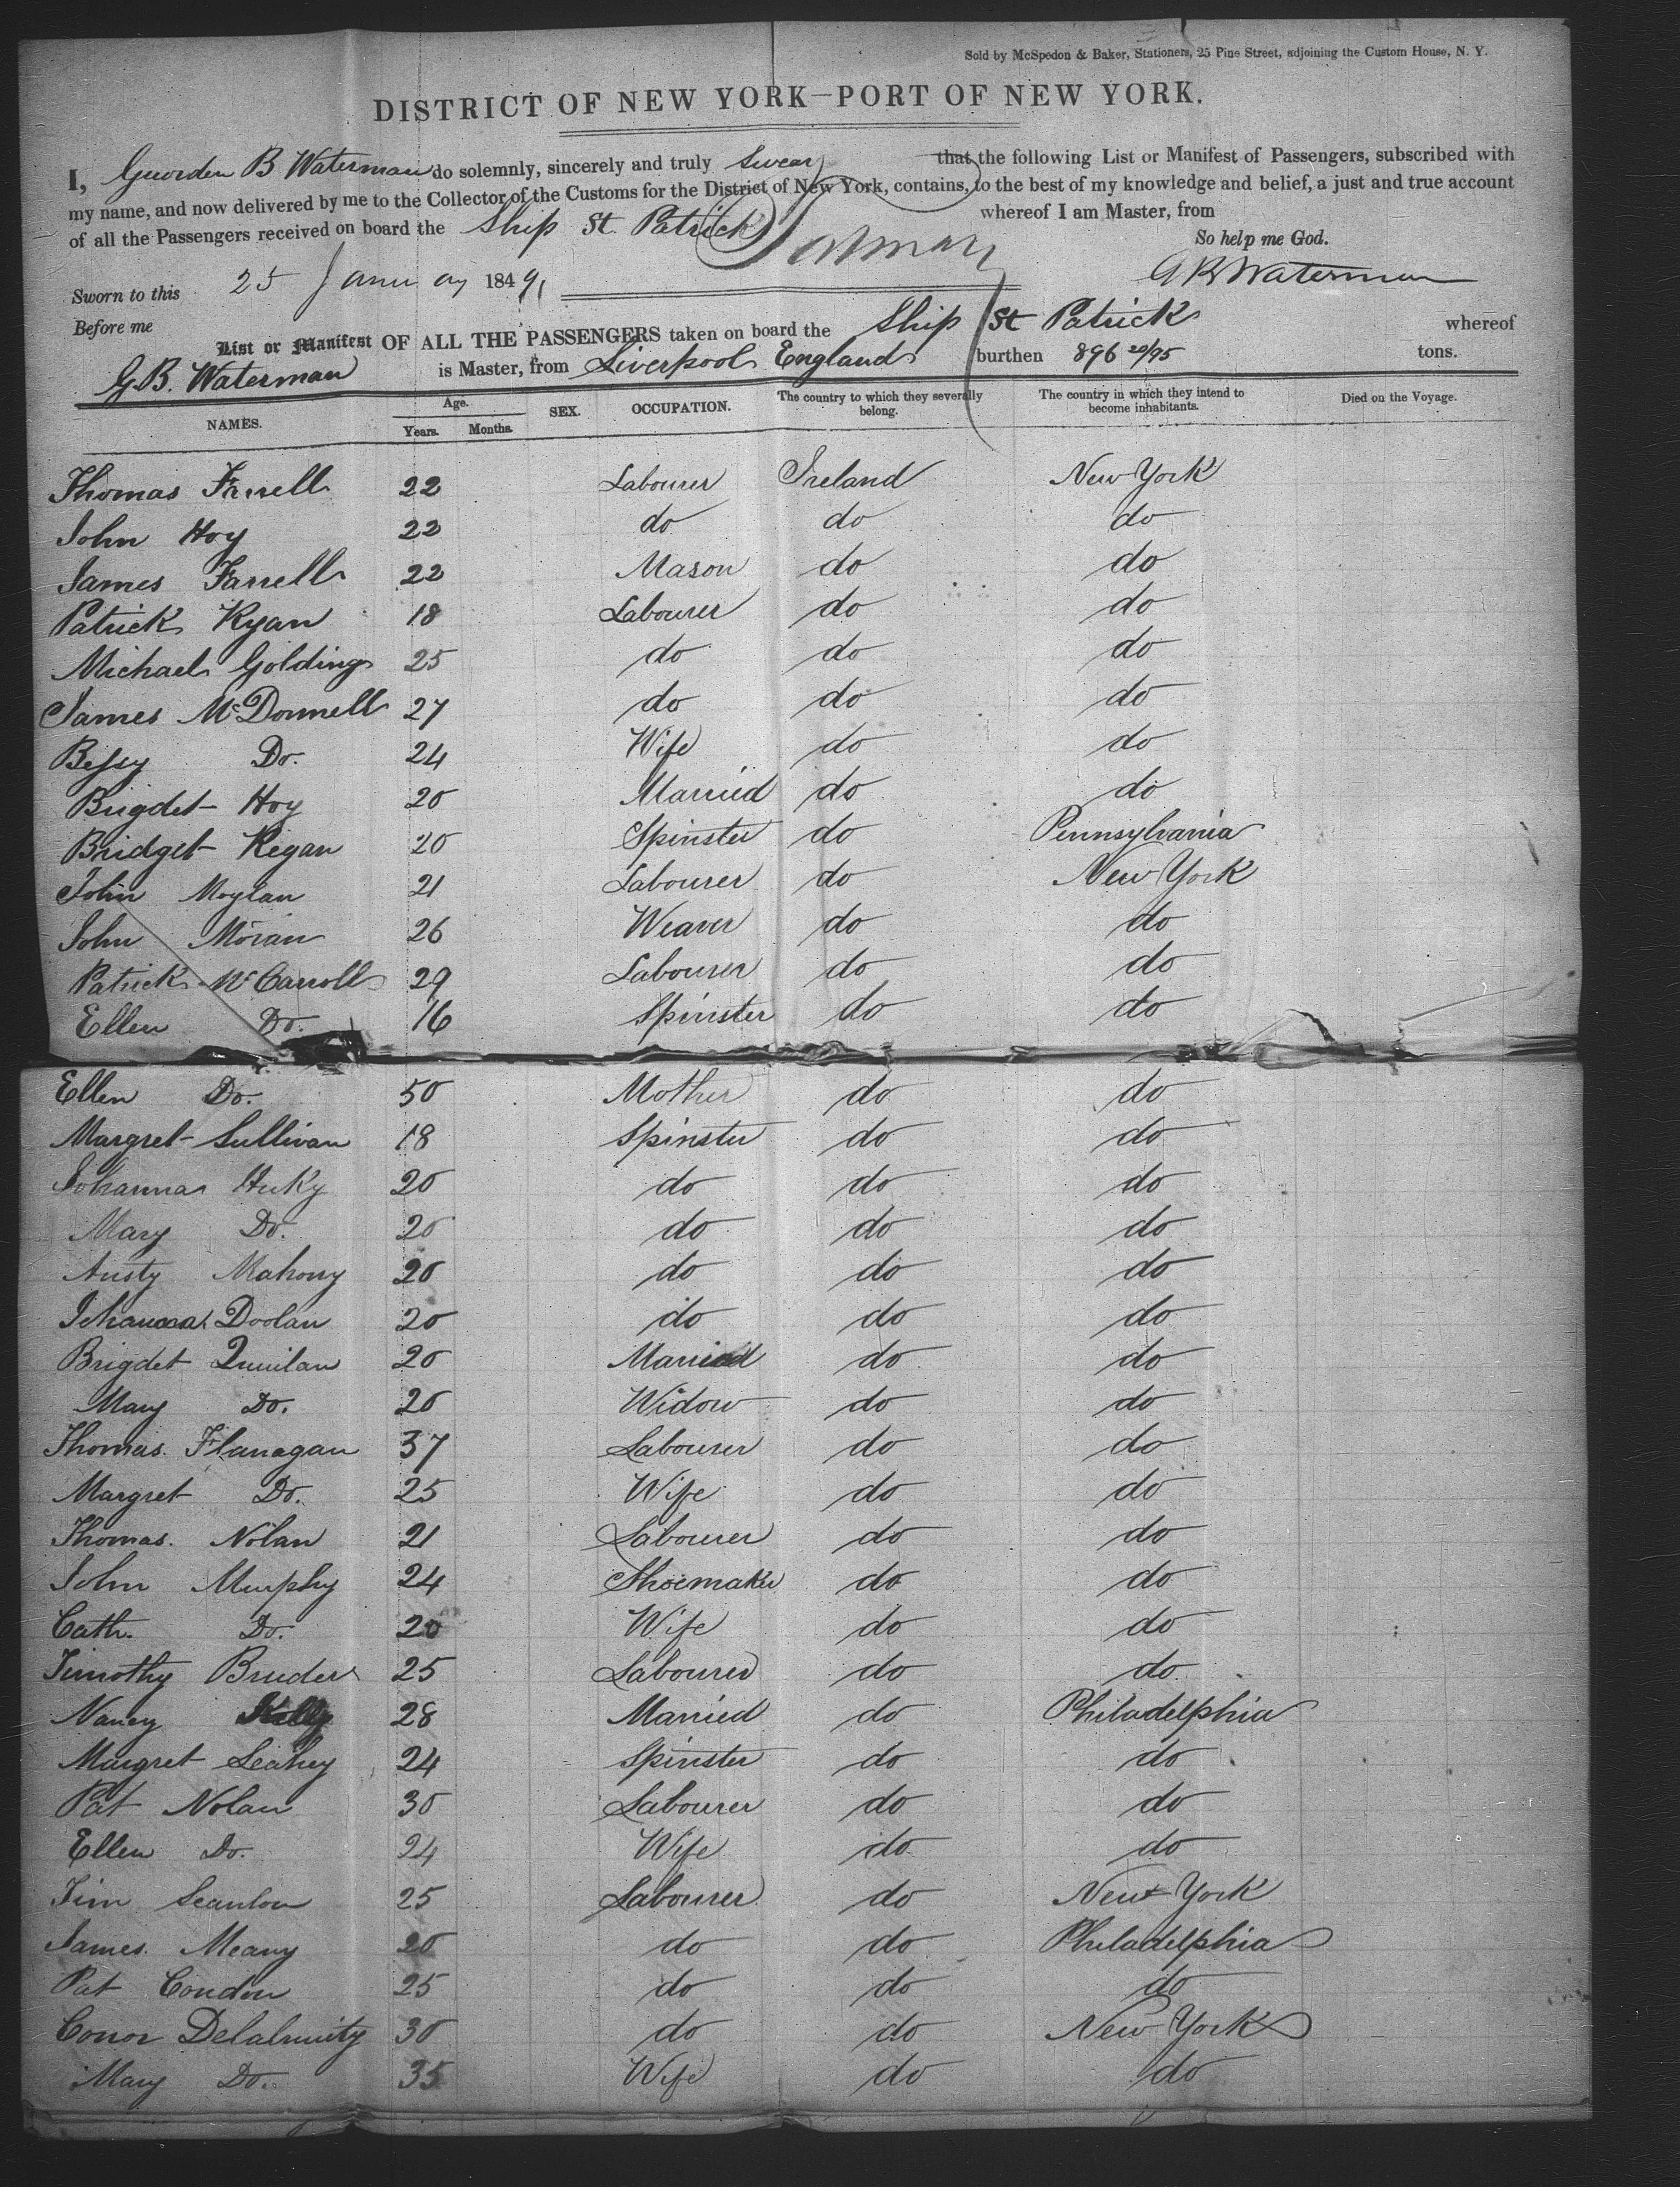 Sold by McSpedon & Baker, Stationers, 25 Pine Street, adjoining the Custom House, N. Y.
DISTRICT OF NEW YORK—PORT OF NEW YORK.
I, Guorden B Waterman do solemnly, sincerely and truly Swear that the following List or Manifest of Passengers, subscribed with
my name, and now delivered by me to the Collector of the Customs for the District of New York, contains, to the best of my knowledge and belief, a just and true account
of all the Passengers received on board the Ship St. Patrick whereof I am Master, from
So help me God.
Sworn to this 25 January 1849, G B Waterman
Before me
List or Manifest OF ALL THE PASSENGERS taken on board the Ship St Patrick whereof
G.B. Waterman is Master, from Liverpool England burthen 896 20/95 tons.
NAMES. Age. Years. Months. SEX. OCCUPATION. The country to which they severally belong. The country in which they intend to become inhabitants. Died on the Voyage.
Thomas Farrell 22 Labourer Ireland New York
John Hoy 22 do do do
James Farrell 22 Mason do do
Patrick Ryan 18 Labourer do do
Michael Golding 25 do do do
James McDonnell 27 do do do
Bessy Do. 24 Wife do do
Brigdet Hoy 20 Married do do
Bridget Regan 20 Spinster do Pennsylvania
John Moylan 21 Labourer do New York
John Moran 26 Weaver do do
Patrick McCarroll 29 Labourer do do
Ellen Do. 16 Spinster do do
Ellen Do. 50 Mother do do
Margret Sullivan 18 Spinster do do
Johanna 20 do do do
Mary Do. 20 do do do
Mahony 20 do do do
Doolan 20 do do do
Brigdet Quinlan 20 Married do do
Mary Do. 20 Widow do do
Thomas Flanagan 37 Labourer do do
Margret Do. 25 Wife do do
Thomas. Nolan 21 Labourer do do
John Murphy 24 Shoemaker do do
Cath. Do. 20 Wife do do
Timothy Bruder 25 Labourer do do
Nancy Kelly 28 Married do Philadelphia
Margret Leahey 24 Spinster do do
Pat Nolan 30 Labourer do do
Ellen Do. 24 Wife do do
Tim Scanlon 25 Labourer do New York
James. Meany 20 do do Philadelphia
Pat Condon 25 do do do
Conor 30 do do New York
Mary Do. 35 Wife do do